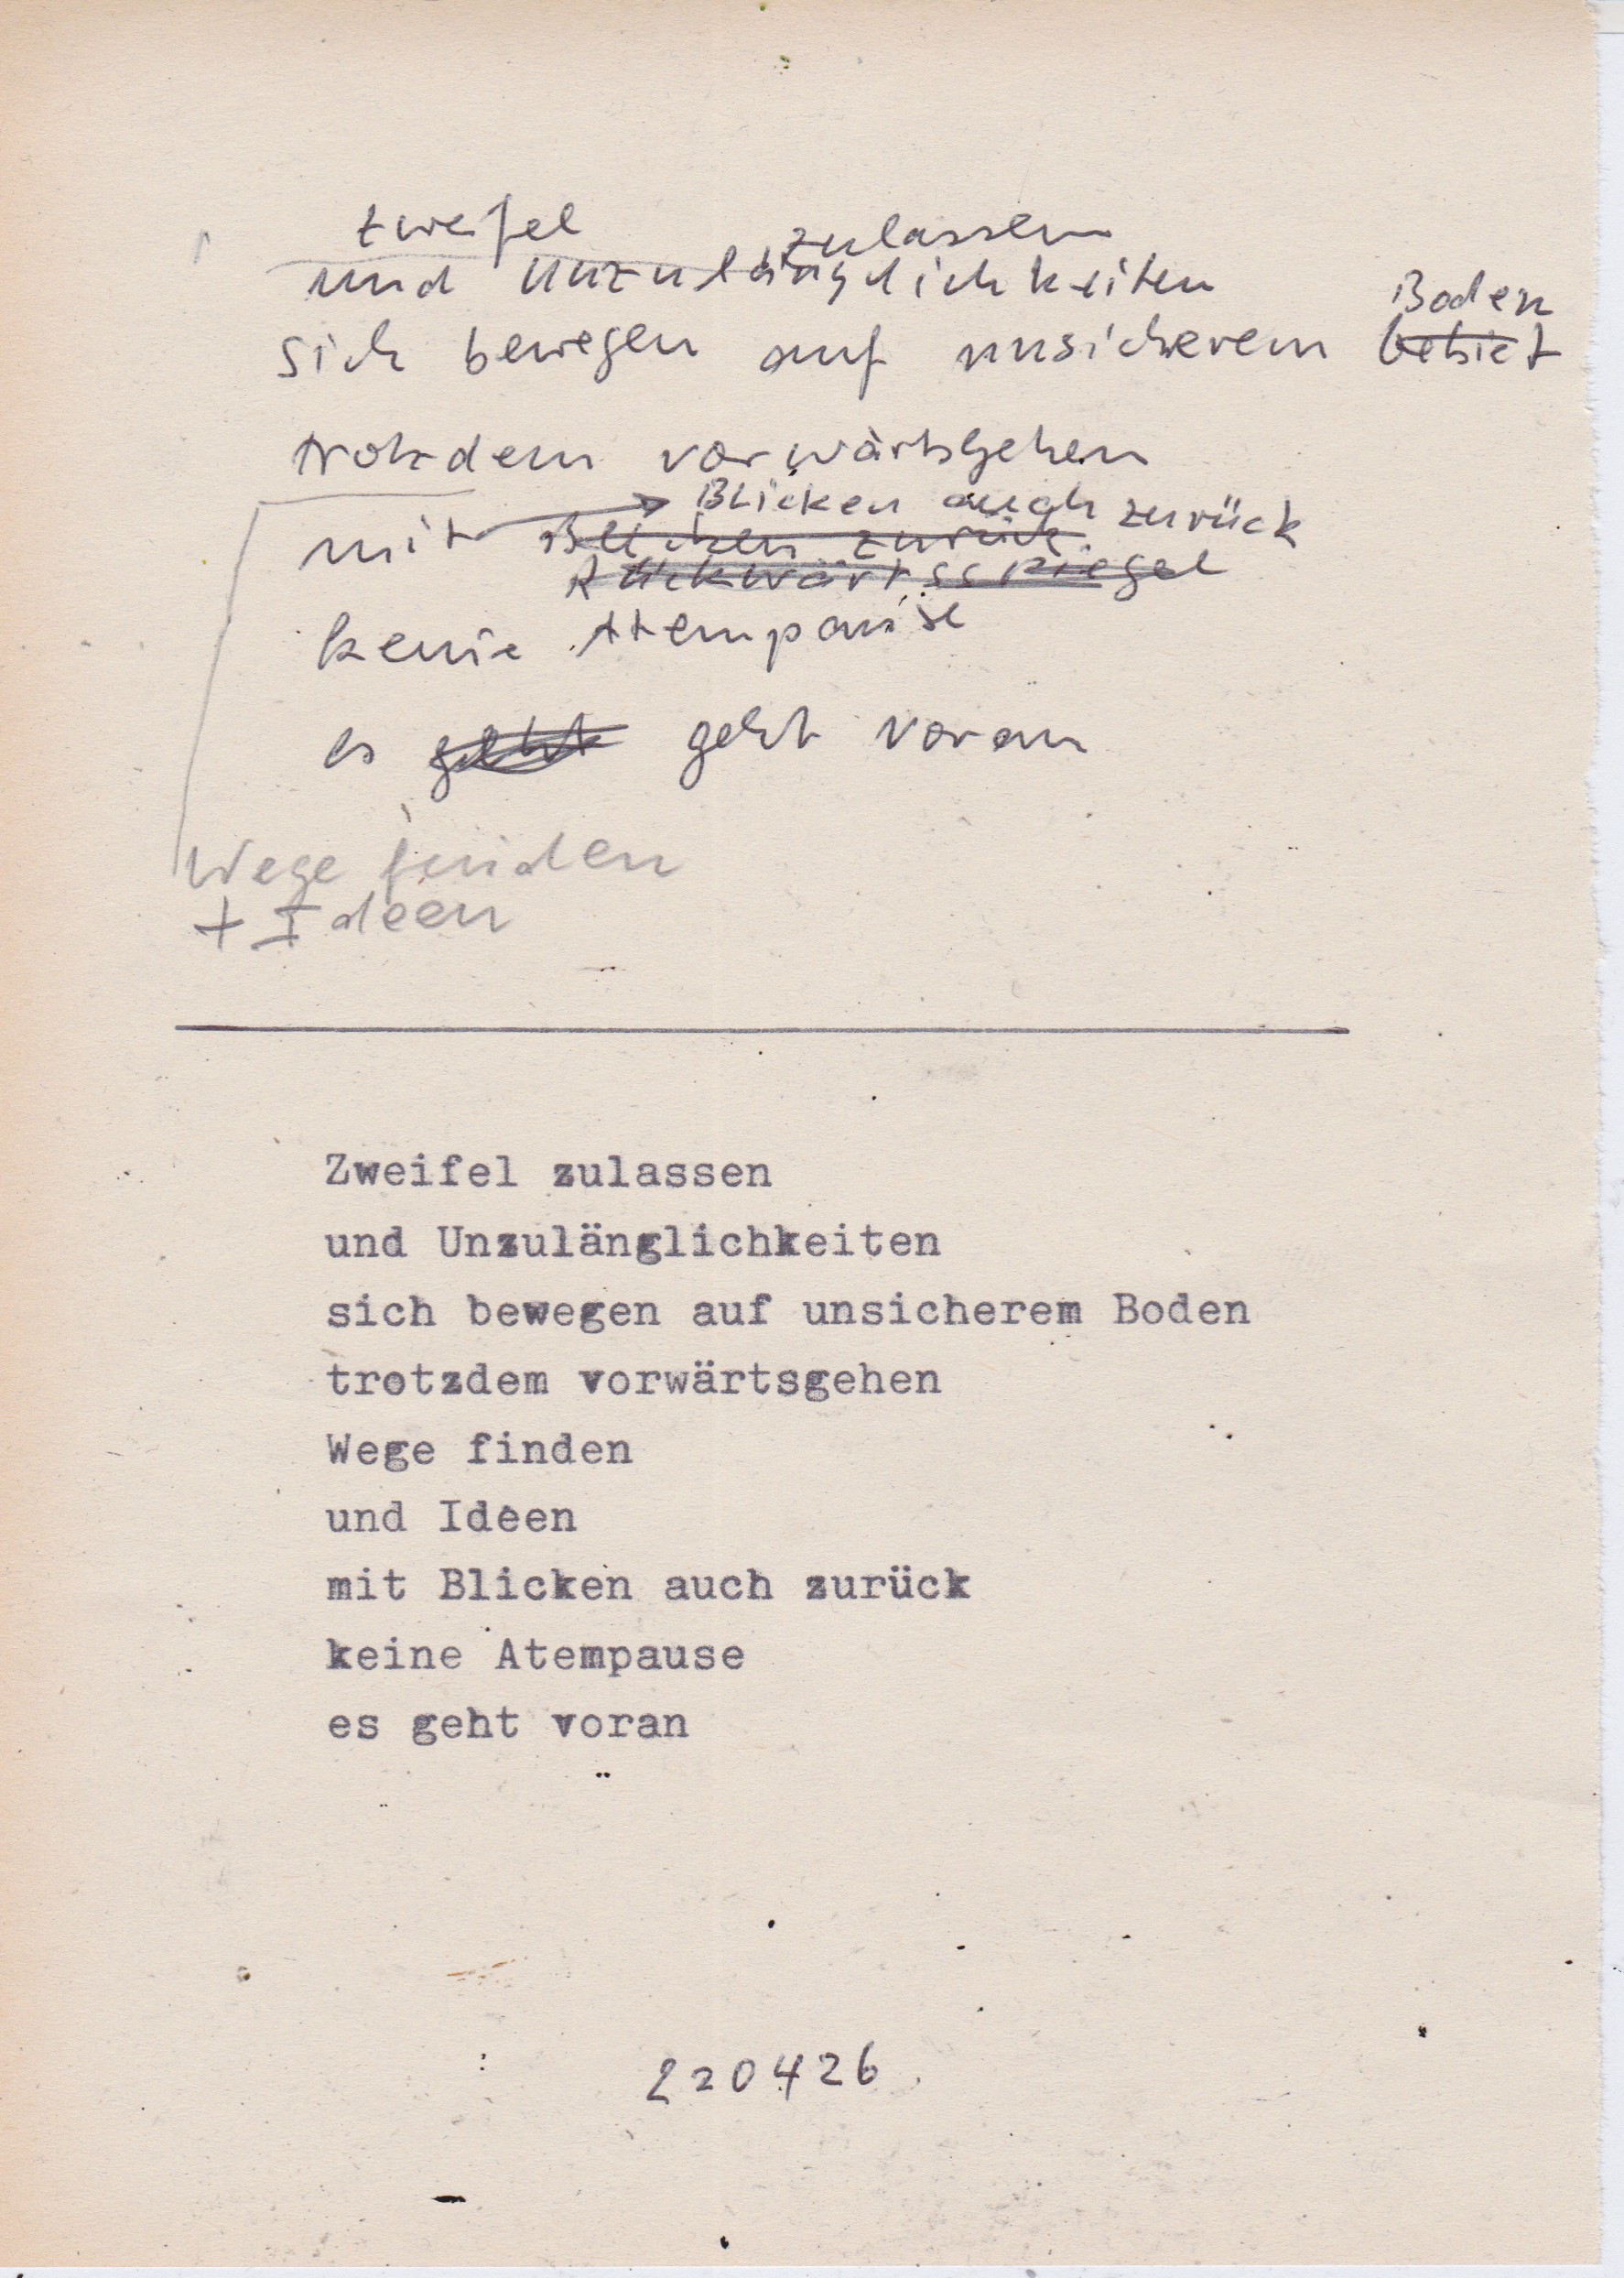 Zweifel zulassen
und Unzulänglichkeiten
Boden
sich bewegen auf unsicherem Gebiet
trotzdem vorwärtsgehen
Blicken auch zurück
mit Blicken zurück
Rückwärtsspiegel
keine Atempause
es geht geht voran
Wege finden
+ Ideen
Zweifel zulassen
und Unzulänglichkeiten
sich bewegen auf unsicherem Boden
trotzdem vorwärtsgehen
Wege finden
und Ideen
mit Blicken auch zurück
keine Atempause
es geht voran
220426